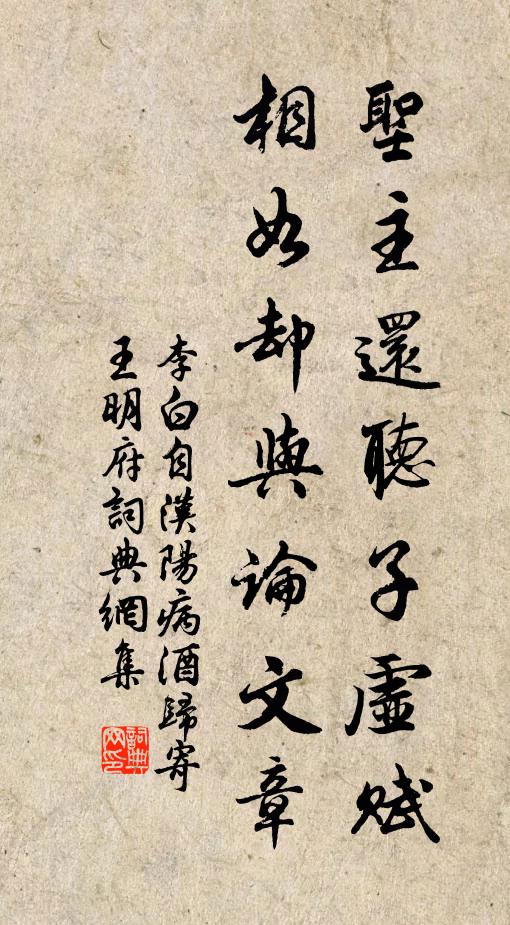 聖主還聽子虛賦
相如却與論文章
李白自漢陽病酒歸寄
王明府詞典網集
詞典網印